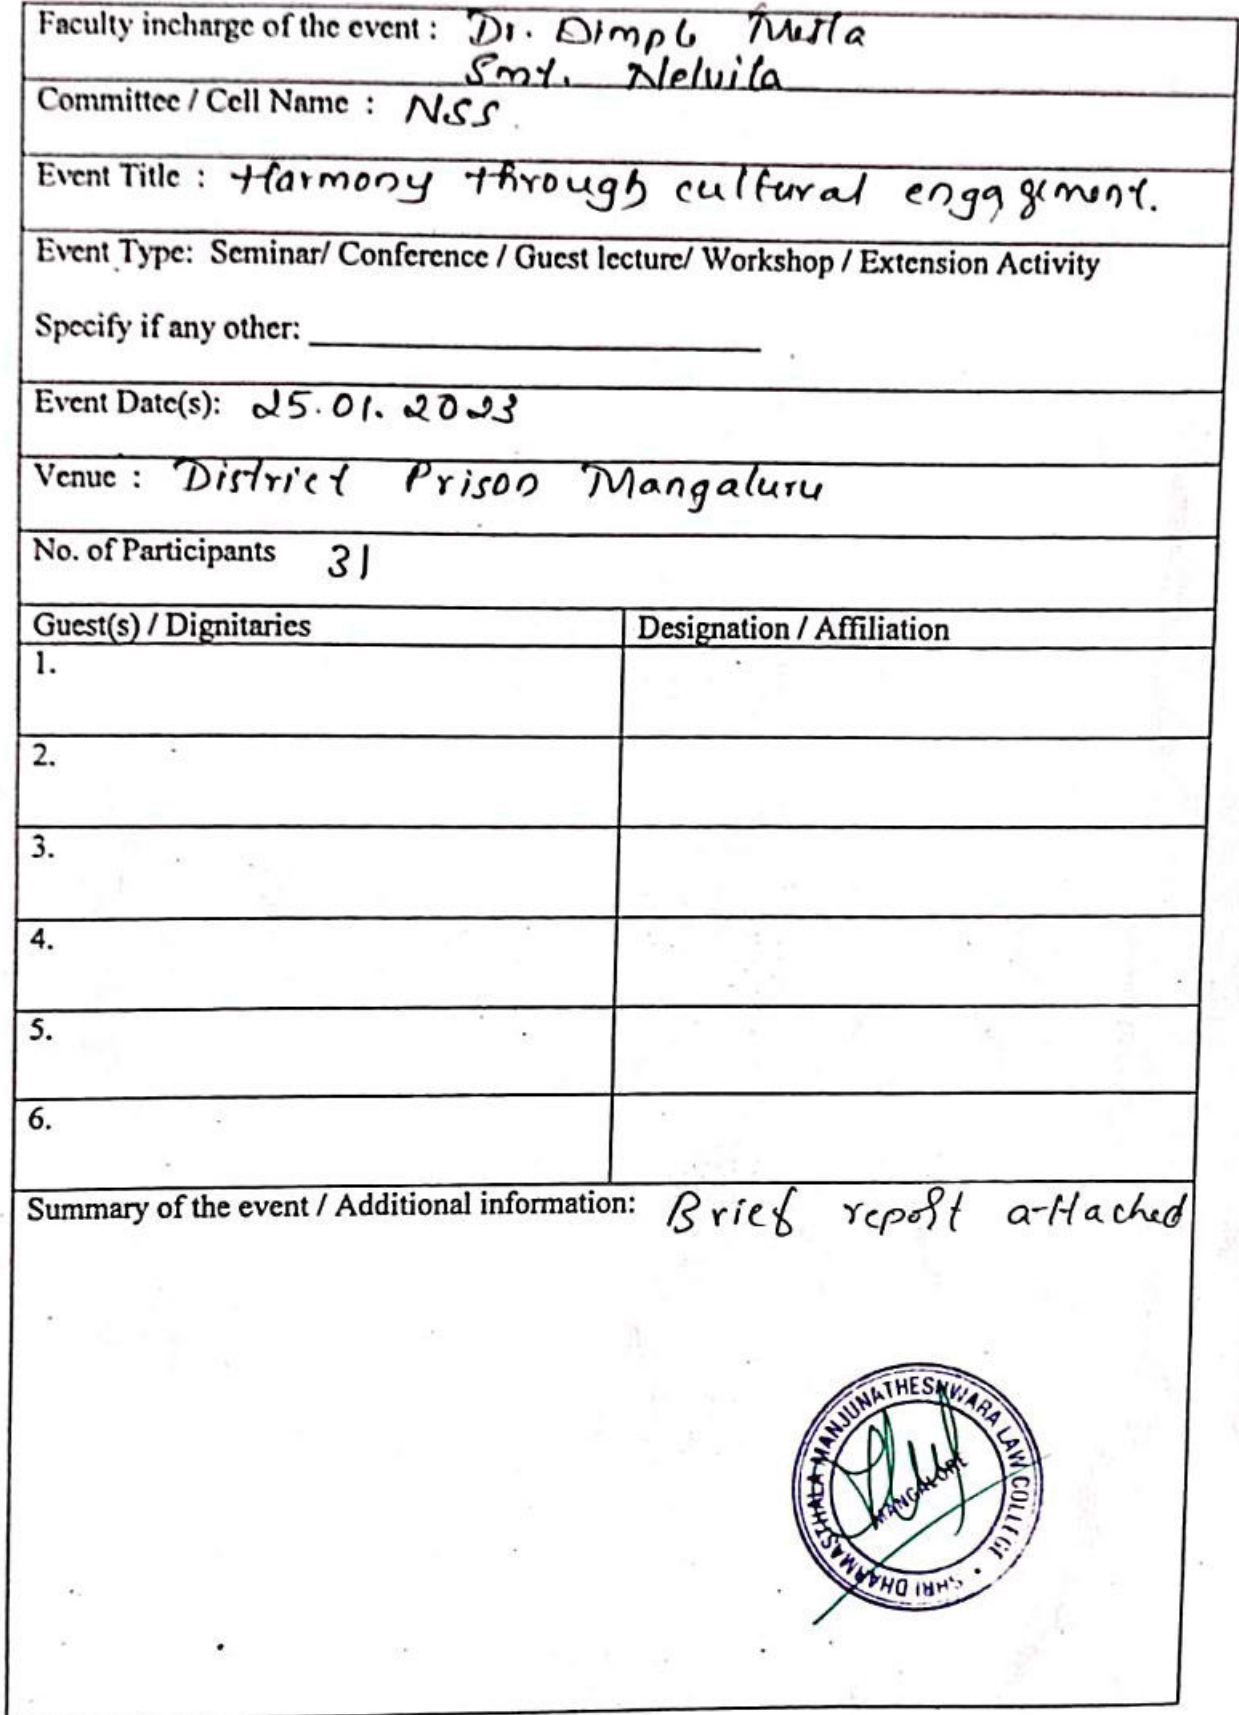 Faculty incharge of the event : Dr. Dimple Mesta
Smt. Nelvila
Committee / Cell Name : NSS
Event Title : Harmony through cultural engagement.
Event Type: Seminar/ Conference / Guest lecture/ Workshop / Extension Activity
Specify if any other:
Event Date(s): 25.01.2023
Venue : District Prison Mangaluru
No. of Participants 31
Guest(s) / Dignitaries Designation / Affiliation
1.
2.
3.
4.
5.
6.
Summary of the event / Additional information: Brief report attached
SHRI DHARMASTHALA MANJUNATHESHWARA LAW COLLEGE
MANGALORE